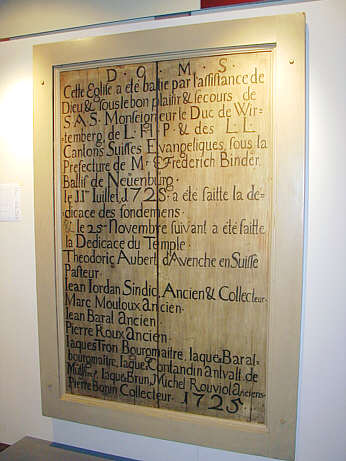 D·O·M·S·
Cette Eglise a été batie par l'assistance de
Dieu & Sous le bon plaisir & secours de
S·A·S· Monseigneur le Duc de Wir-
temberg, de L·H·P· & des L·L·
Cantons Suisses Evangeliques, sous la
Prefecture de Mr· Frederich Binder,
Ballif de Neüenburg·
le 11e Iuillet, 1725· a été faitte la de-
dicace des fondemens·
& le 25e Novembre suivant a été faitte
la Dedicace du Temple·
Theodoric Aubert d'Avenche en Suisse
Pasteur·
Iean Iordan Sindic, Ancien & Collecteur·
Marc Mouloux ancien·
Iean Baral ancien·
Pierre Roux ancien·
Iaques Tron Bourgmaitre, Iaque Baral·
bourgmaitre, Iaque, Conlandin
Iaque Brun, Michel Rouviol anciens·
Pierre Bonin Collecteur· 1725